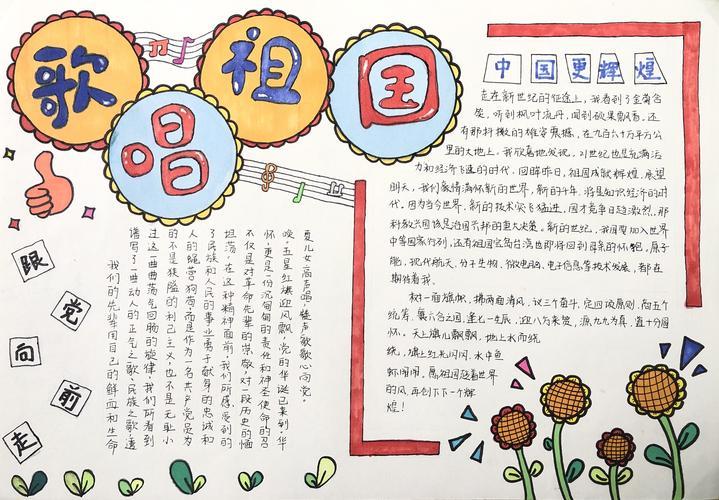 歌唱祖国
跟
党
向
前
走
我们的先辈用自己的鲜血和生命
谱写了一曲动人的正气之歌、民族之歌，透
过这一曲曲荡气回肠的旋律，我们所看到
的不是狭隘的利己主义，也不是无耻小
人的蝇营狗苟，而是作为一名共产党员为
了民族和人民的事业勇于献身的忠诚和
坦荡。在这种精神面前，我们所感受到的
不仅是对革命先辈的崇敬，对一段历史的缅
怀，更是一份沉甸甸的责任和神圣使命的召
唤，五星红旗迎风飘，党的华诞已来到，华
夏儿女高声唱，声歌歌心向党。
中国更辉煌
走在新世纪的征途上，我看到了金菊含
笑，听到枫叶流丹，闻到硕果飘香，还
有那的雄姿震撼，在九百六十万平方公
里的大地上，我欣喜地发现，21世纪也是充满活
力和经济飞速的时代，回眸昨日，祖国成就辉煌，展望
明天，我们豪情满怀新的世界，新的千年，将是知识经济的时
代。因为当今世界，新的技术突飞猛进，国才竞争日趋激烈，那
科教兴国该是治国兴邦的重大决策。新的世纪，我国要加入世界
中等国家行列，还有祖国宝岛台湾也即将回到母亲的怀抱，原子
能，现代航天，分子生物，微电脑，电子信息等技术发展，都在
期待着我。
树一面旗帜，携两面清风，议三个奋斗，定四项原则，向五个
统筹，襄六合之国，逢七一生辰，迎八方来贺，源九九为真，直十分国
怀。天上旗儿飘飘，地上水而绕
绕，旗上红光闪闪，水中鱼
虾。属祖国随着世界
的风，再创下下一个辉
煌！